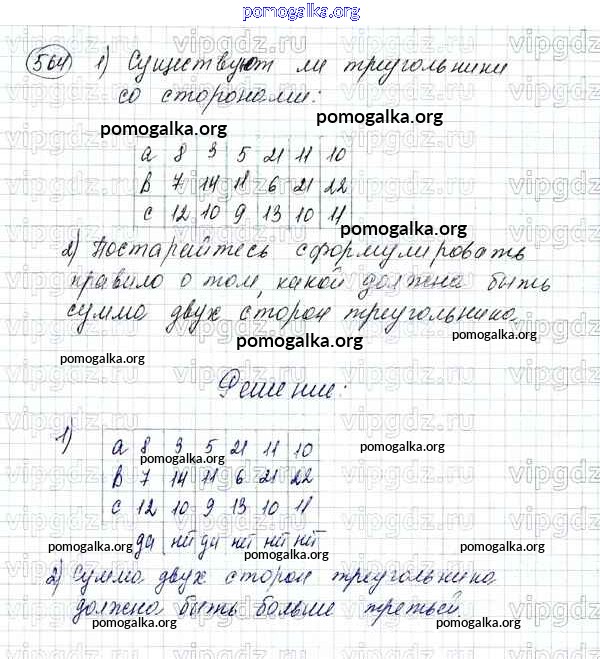 pomogalka.org
564 1) Существуют ли треугольники
со сторонами:
pomogalka.org
pomogalka.org
a 8 3 5 21 11 10
b 7 14 11 6 21 22
c 12 10 9 13 10 11
pomogalka.org
2) Постарайтесь сформулировать
правило о том, какой должна быть
сумма двух сторон треугольника.
pomogalka.org
pomogalka.org
pomogalka.org
Решение:
1)
a 8 3 5 21 11 10
pomogalka.org
pomogalka.org
b 7 14 11 6 21 22
c 12 10 9 13 10 11
да нит да нит нит нит
pomogalka.org
pomogalka.org
2) Сумма двух сторон треугольника
должна быть больше третьей.
pomogalka.org
pomogalka.org